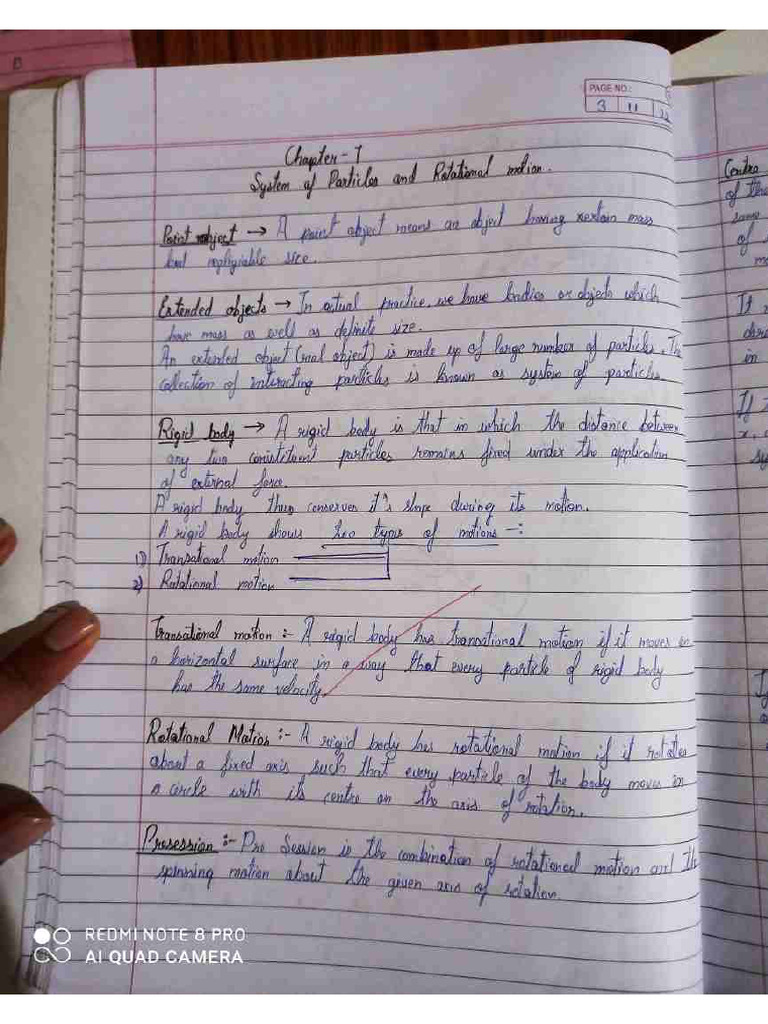 PAGE NO.:
3 11
Chapter-7
System of Particles and Rotational motion.
Point object → A point object means an object having certain mass
but negligiable size.
Extended objects → In actual practice, we have bodies or objects which
have mass as well as definite size.
An extended object (real object) is made up of large number of particles. The
collection of interacting particles is known as system of particles.
Rigid body → A rigid body is that in which the distance between
any two consistituent particles remains fixed under the application
of external force.
A rigid body thus conserves it's shape during its motion.
A rigid body shows two types of motions -:
1) Transational motion
2) Rotational motion
Transational motion :- A rigid body has transational motion if it moves in
a horizontal surface in a way that every particle of rigid body
has the same velocity.
Rotational Motion :- A rigid body has rotational motion if it rotates
about a fixed axis, such that every particle of the body moves in
a circle with its centre on the axis of rotation.
Presession :- Pre Session is the combination of rotational motion and the
spinning motion about the given axis of rotation.
Centre
of the
same
of
It
in
If
REDMI NOTE 8 PRO
AI QUAD CAMERA